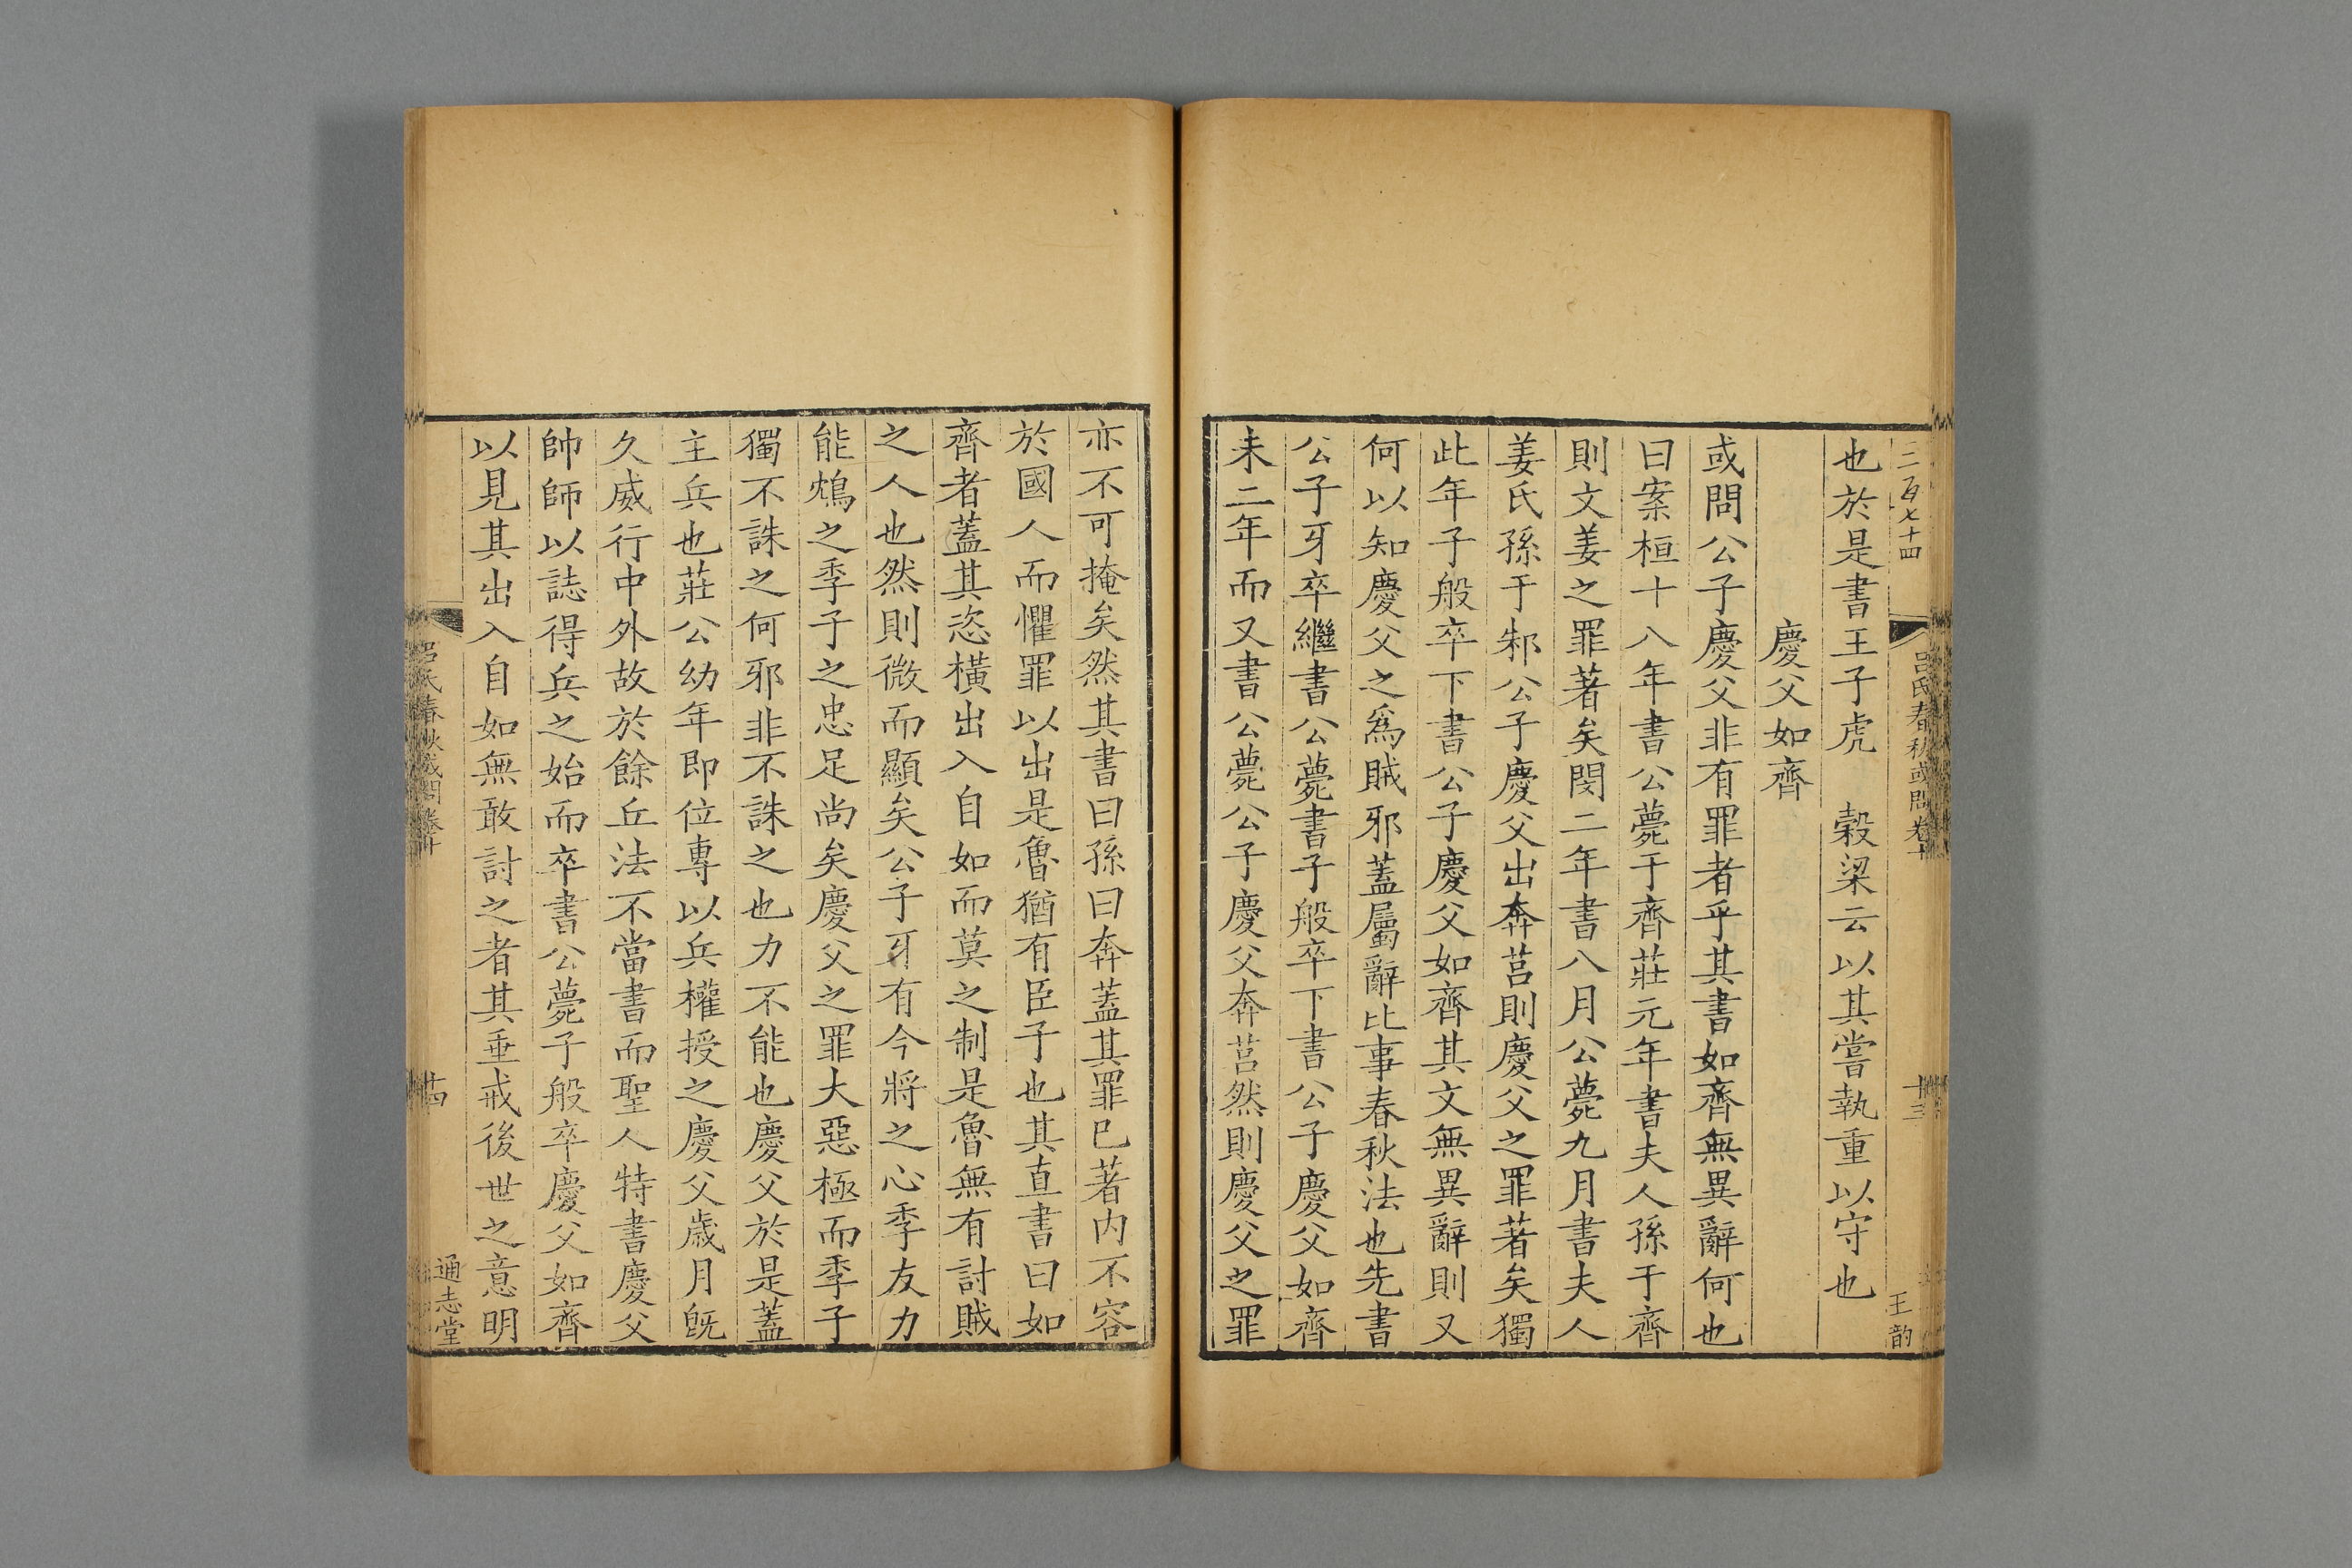 二百七十四
呂氏春秋或問卷十
十三
王韵
也於是書王子虎　穀梁云以其嘗執重以守也
慶父如齊
或問公子慶父非有罪者乎其書如齊無異辭何也
曰案桓十八年書公薨于齊莊元年書夫人孫于齊
則文姜之罪著矣閔二年書八月公薨九月書夫人
姜氏孫于邾公子慶父出奔莒則慶父之罪著矣獨
此年子般卒下書公子慶父如齊其文無異辭則又
何以知慶父之爲賊邪蓋屬辭比事春秋法也先書
公子牙卒繼書公薨書子般卒下書公子慶父如齊
未二年而又書公薨公子慶父奔莒然則慶父之罪
亦不可掩矣然其書曰孫曰奔蓋其罪已著内不容
於國人而懼罪以出是魯猶有臣子也其直書曰如
齊者蓋其恣橫出入自如而莫之制是魯無有討賊
之人也然則微而顯矣公子牙有今將之心季友力
能鴆之季子之忠足尚矣慶父之罪大惡極而季子
獨不誅之何邪非不誅之也力不能也慶父於是蓋
主兵也莊公幼年即位專以兵權授之慶父歲月旣
久威行中外故於餘丘法不當書而聖人特書慶父
帥師以誌得兵之始而卒書公薨子般卒慶父如齊
以見其出入自如無敢討之者其垂戒後世之意明
呂氏春秋或問卷十
十四
通志堂